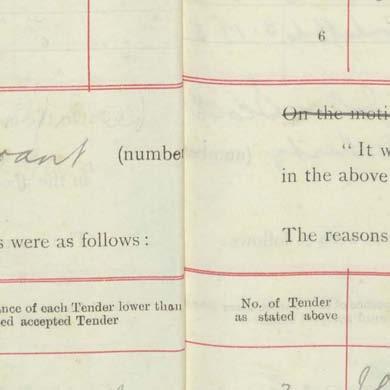 (number
s were as follows :
ance of each Tender lower than
ed accepted Tender
6
On the moti
"It w
in the above
The reasons
No. of Tender
as stated above